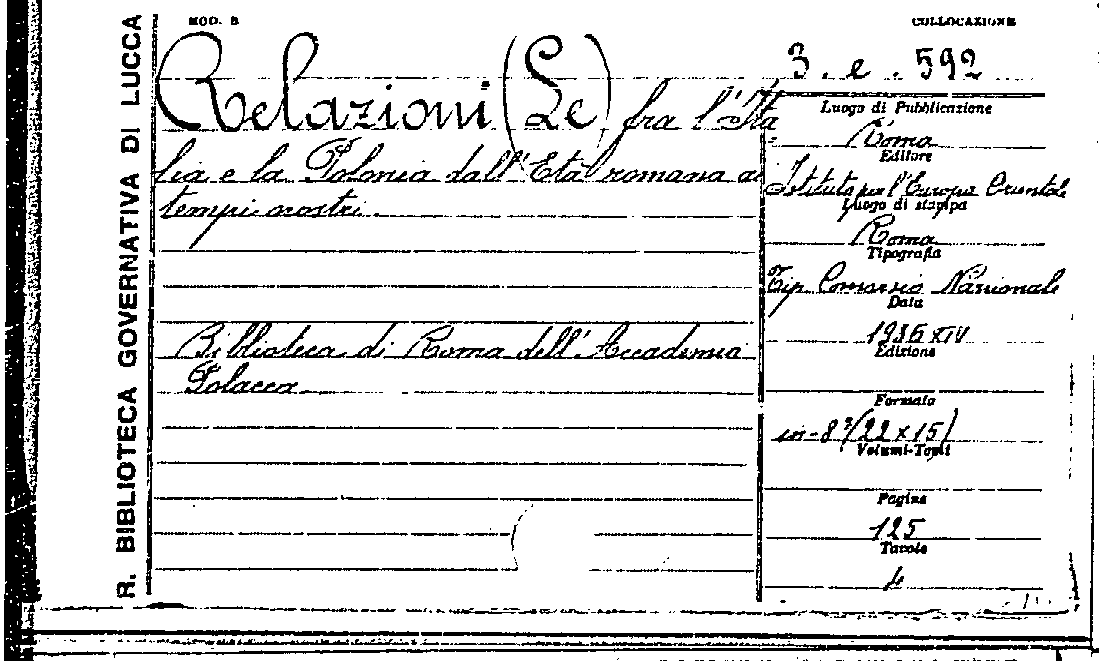 R. BIBLIOTECA GOVERNATIVA DI LUCCA
MOD. B
COLLOCAZIONE
3. e. 592
Relazioni (Le) fra l'Ita
lia e la Polonia dall'Età romana ai
tempi nostri.
Biblioteca di Roma dell'Accademia
Polacca
Luogo di Pubblicazione
Roma
Editore
Istituto per l'Europa Orientale
Luogo di stampa
Roma
Tipografia
Tip. Consorzio Nazionale
Data
1936 XIV
Edizione
Formato
in-8° (22 x 15)
Volumi-Tomi
Pagine
125
Tavole